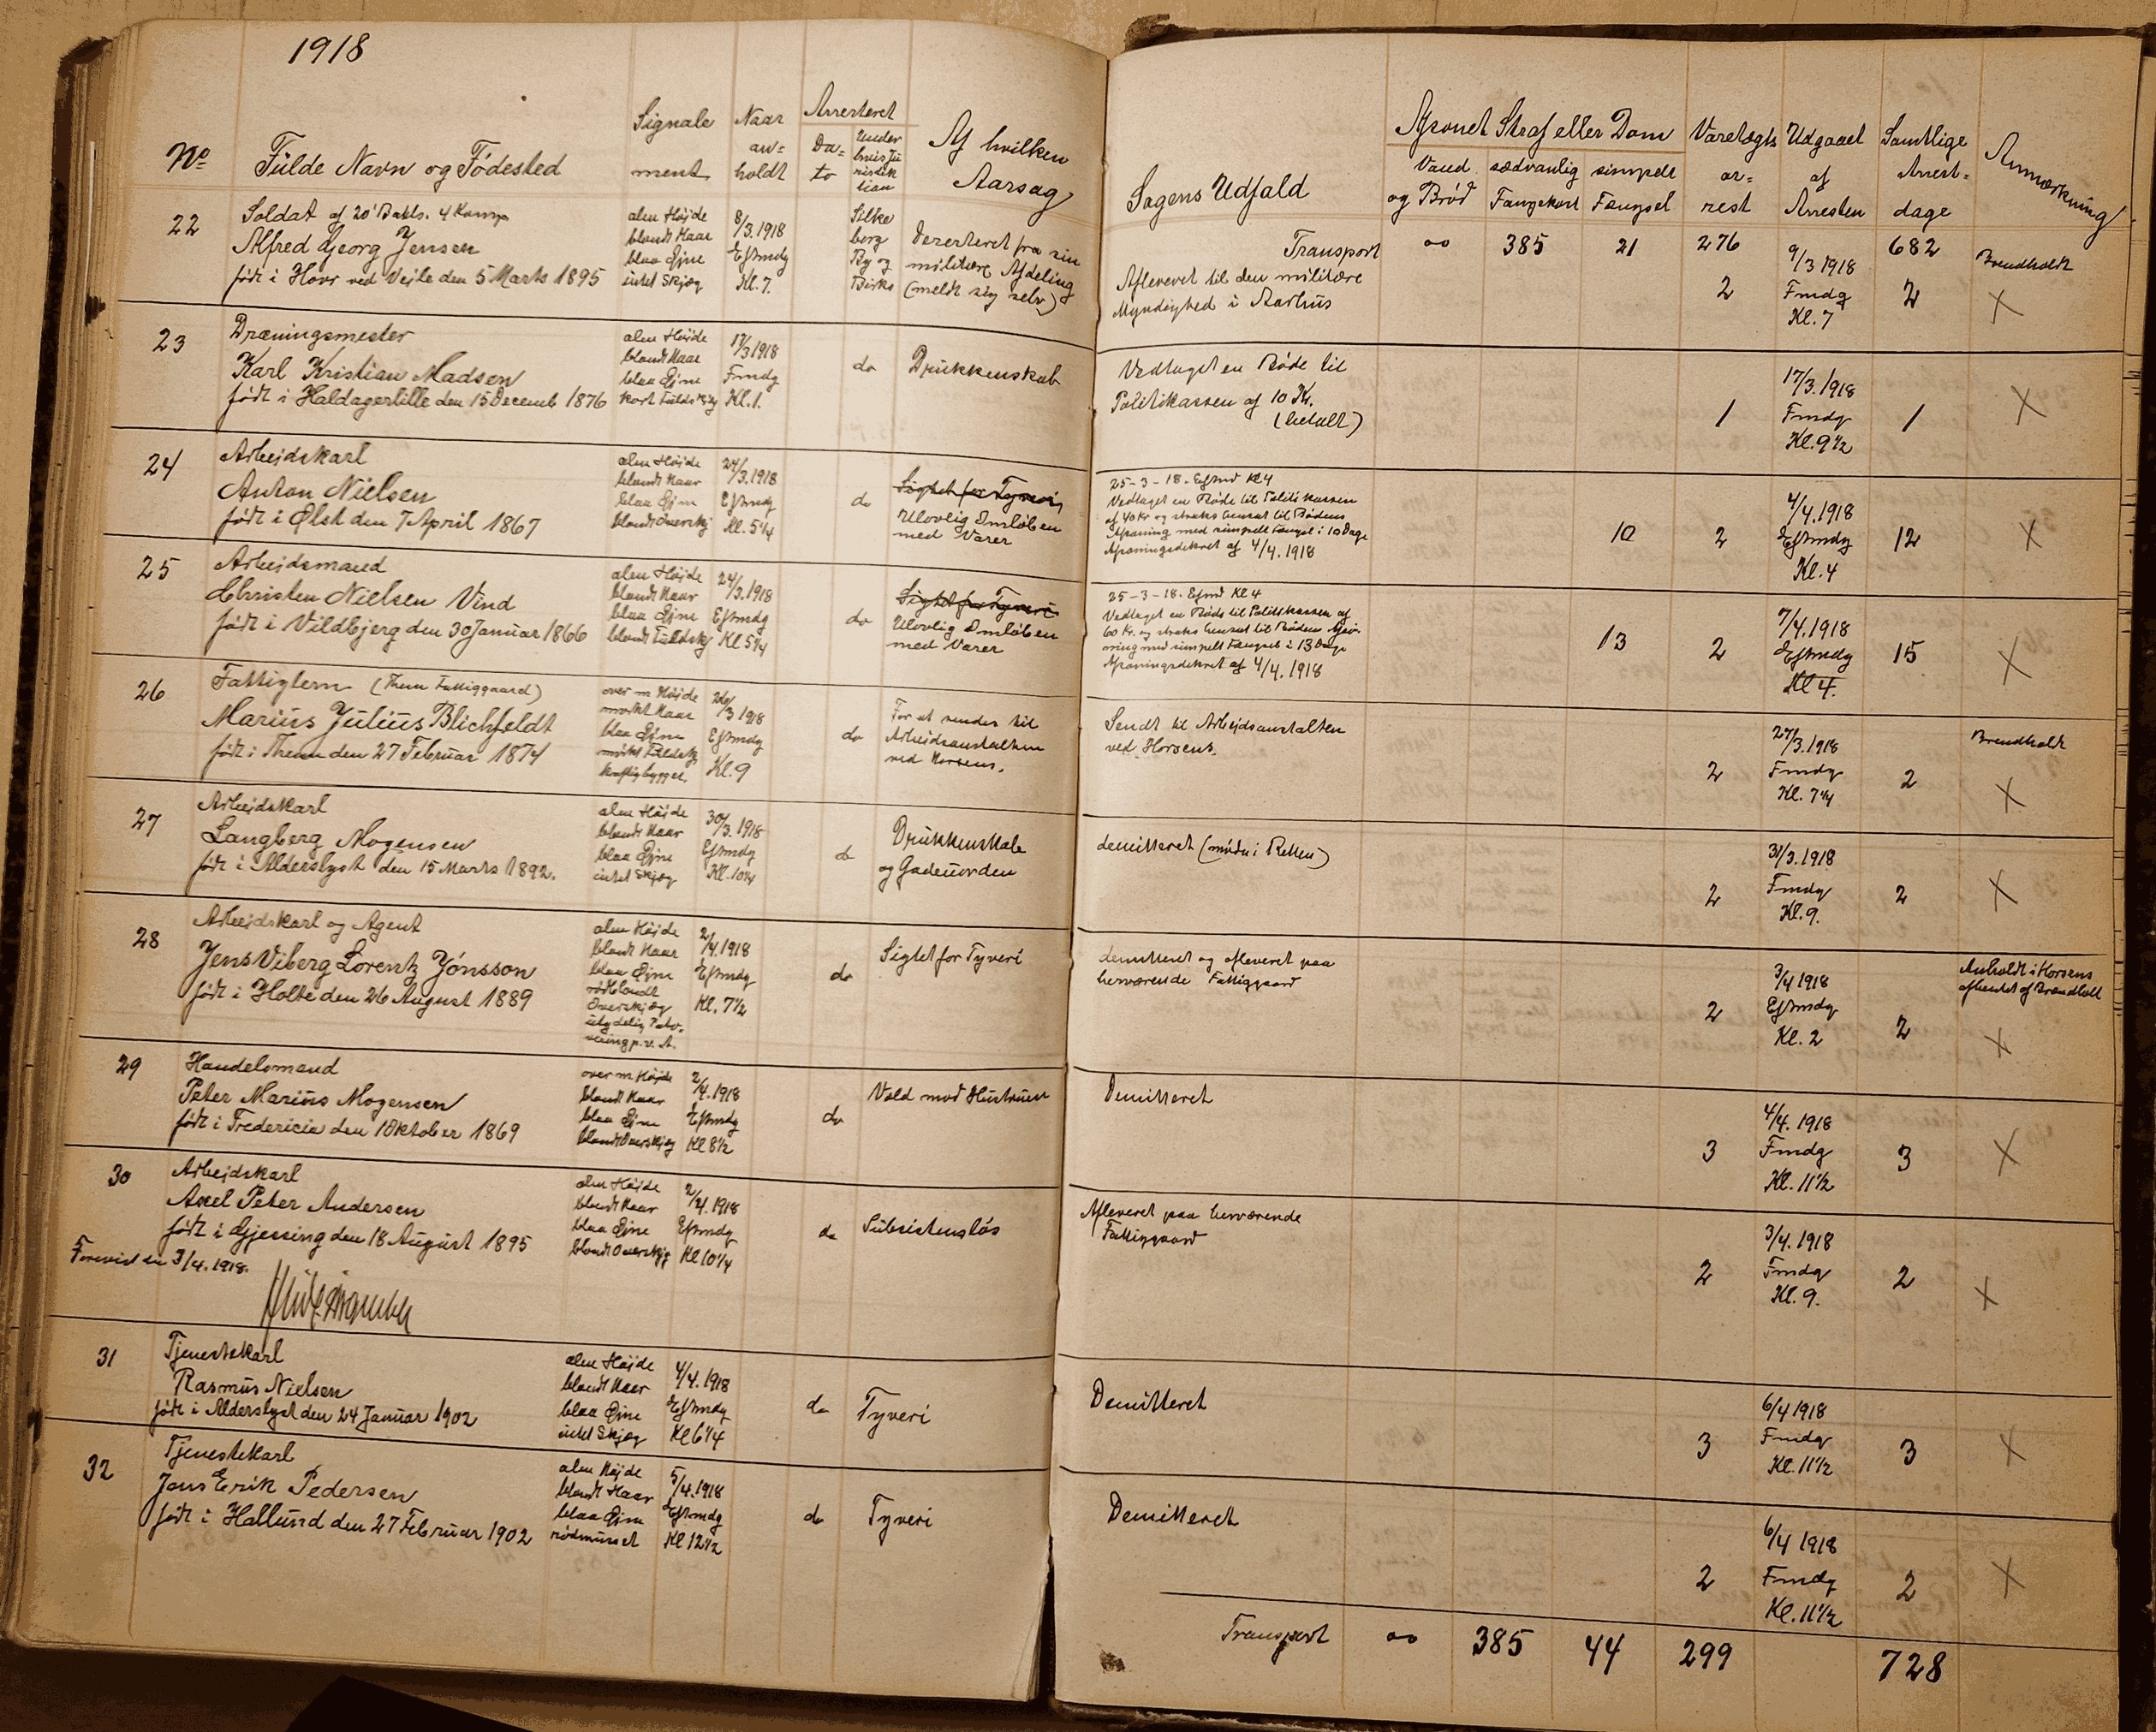 1918
No
Fulde Navn og Fødested
Signale
ment
Naar
an=
holdt
Arresteret
Da=
to
Under
hvis Ju
risdik
tion
Af hvilken
Aarsag
22
Soldat af 20' Batls. 4 Komp
Alfred Georg Jensen
født i Hover ved Vejle den 5 Marts 1895
alm Højde
blondt Haar
blaa Øjne
intet Skjæg
8/3.1918
Eftmdg
Kl. 7.
Silke
borg
By og
Birks
Deserteret fra sin
militære Afdeling
(meldt sig selv)
23
Dræningsmester
Karl Kristian Madsen
født i Haldagerlille den 15 Decemb 1876
alm Højde
blondt Haar
blaa Øjne
kort Fuldskjæg
17/3 1918
Fmdg
Kl. 1.
do
Drukkenskab
24
Arbejdskarl
Anton Nielsen
født i Ølst den 7 April 1867
alm Højde
blondt Haar
blaa Øjne
blondt Overskj
24/3.1918
Eftmdg
Kl. 5¼
do
Sigtet for Tyveri
Ulovlig Omløben
med Varer
25
Arbejdsmand
Christen Nielsen Vind
født i Vildbjerg den 30 Januar 1866
alm Højde
blondt Haar
blaa Øjne
blondt Fuldskj
24/3.1918
Eftmdg
Kl 5¼
do
Sigtet for Tyveri
Ulovlig Omløben
med Varer
26
Fattiglem (Them Fattiggaard)
Marius Julius Blichfeldt
født i Them den 27 Februar 1874
over m Højde
mørkt Haar
blaa Øjne
mørkt Fuldskj
kraftig bygget.
26/3 1918
Eftmdg
Kl. 9
do
For at sendes til
Arbejdsanstalten
ved Horsens.
27
Arbejdskarl
Langberg Mogensen
født i Alderslyst den 15 Marts 1892.
alm Højde
blondt Haar
blaa Øjne
intet Skjæg
30/3.1918
Eftmdg
Kl. 10¼
do
Drukkenskab
og Gadeuorden
28
Arbejdskarl og Agent
Jens Viberg Lorentz Jónsson
født i Holte den 26 August 1889
alm Højde
blondt Haar
blaa Øjne
rødblondt
Overskjæg
utydelig Tato-
vering p. v. A.
2/4.1918
Eftmdg
Kl. 7½
do
Sigtet for Tyveri
29
Handelsmand
Peter Marius Mogensen
født i Fredericia den 1 Oktober 1869
over m Højde
blondt Haar
blaa Øjne
blondt Overskjæg
2/4.1918
Eftmdg
Kl 8½
do
Vold mod Hustruen
30
Arbejdskarl
Axel Peter Andersen
født i Gjessing den 18 August 1895
alm Højde
blondt Haar
blaa Øjne
blondt Overskjg
2/4.1918
Eftmdg
Kl 10¼
do
Subsistensløs
Forevist den 3/4.1918.
31
Tjenestekarl
Rasmus Nielsen
født i Alderslyst den 24 Januar 1902
alm Højde
blondt Haar
blaa Øjne
intet Skjæg
4/4.1918
Eftmdg
Kl 6¼
do
Tyveri
32
Tjenestekarl
Jens Erik Pedersen
født i Hallund den 27 Februar 1902
alm Højde
blondt Haar
blaa Øjne
rødmusset
5/4.1918
Eftmdg
Kl 12½
do
Tyveri
Sagens Udfald
Afsonet Straf eller Dom
Vand
og Brød
sædvanlig
Fangekost
simpelt
Fængsel
Varetægts
ar=
rest
Udgaaet
af
Arresten
Samtlige
Arrest=
dage
Anmærkning
Transport
00
385
21
276
682
Afleveret til den militære
Myndighed i Aarhus
2
9/3 1918
Fmdg
Kl. 7
2
Brendholt
X
Vedtaget en Bøde til
Politikassen af 10 Kr.
(betalt)
1
17/3.1918
Fmdg
Kl. 9½
1
X
25-3-18. Eftmd Kl 4
Vedtaget en Bøde til Politikassen
af 40 Kr og straks hensat til Bødens
Afsoning med simpelt Fængsel i 10 Dage
Afsoningsdekret af 4/4. 1918
10
2
4/4.1918
Eftmdg
Kl. 4
12
X
25-3-18. Eftmd Kl 4
Vedtaget en Bøde til Politikassen af
60 Kr. og straks hensat til Bødens Afso-
ning med simpelt Fængsel i 13 Dage
Afsoningsdekret af 4/4. 1918
13
2
7/4.1918
Eftmdg
Kl 4.
15
X
Sendt til Arbejdsanstalten
ved Horsens.
2
27/3.1918
Fmdg
Kl. 7¼
2
Brendholt
X
demitteret (møde i Retten)
2
31/3.1918
Fmdg
Kl. 9.
2
X
demitteret og afleveret paa
herværende Fattiggaard
2
3/4 1918
Eftmdg
Kl. 2
2
Anholdt i Horsens
afhentet af Brendholt
X
Demitteret
3
4/4. 1918
Fmdg
Kl. 11½
3
X
Afleveret paa herværende
Fattiggaard
2
3/4.1918
Fmdg
Kl. 9.
2
X
Demitteret
3
6/4 1918
Fmdg
Kl. 11½
3
X
Demitteret
2
6/4 1918
Fmdg
Kl. 11½
2
X
Transport
00
385
44
299
728